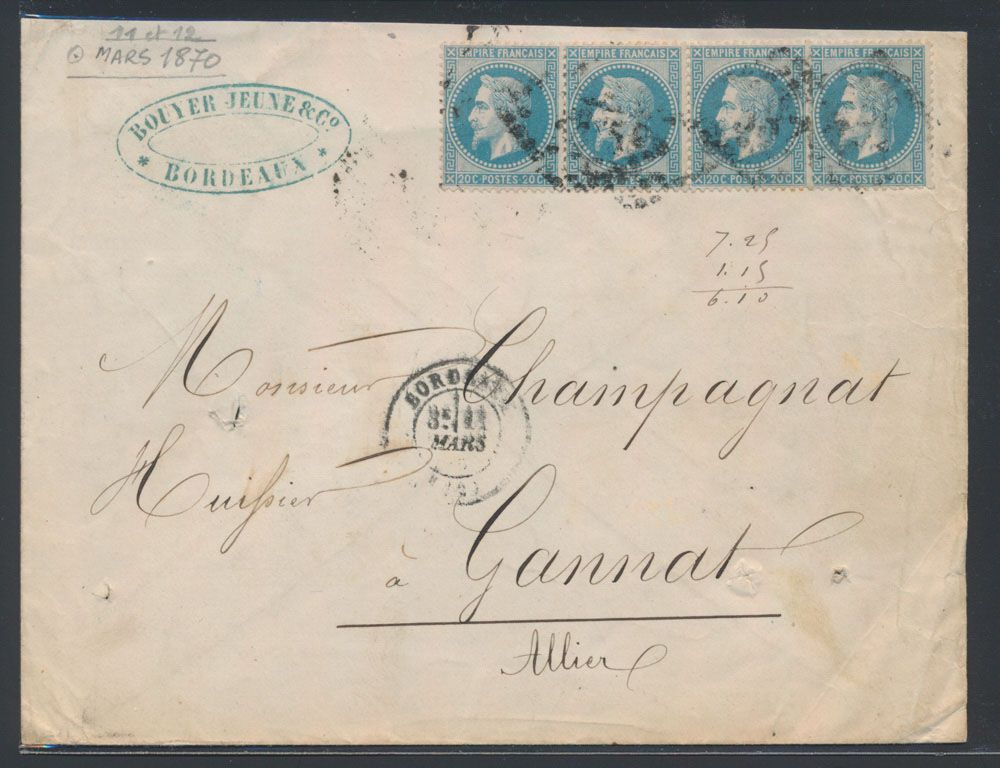 11 et 12
MARS 1870
BOUYER JEUNE & Cº
* BORDEAUX *
EMPIRE FRANÇAIS
20 C POSTES 20 C
EMPIRE FRANÇAIS
20 C POSTES 20 C
EMPIRE FRANÇAIS
20 C POSTES 20 C
EMPIRE FRANÇAIS
20 C POSTES 20 C
7.25
1.15
6.10
Monsieur Champagnat
BORDEAUX
MARS
Huissier
à Gannat
Allier